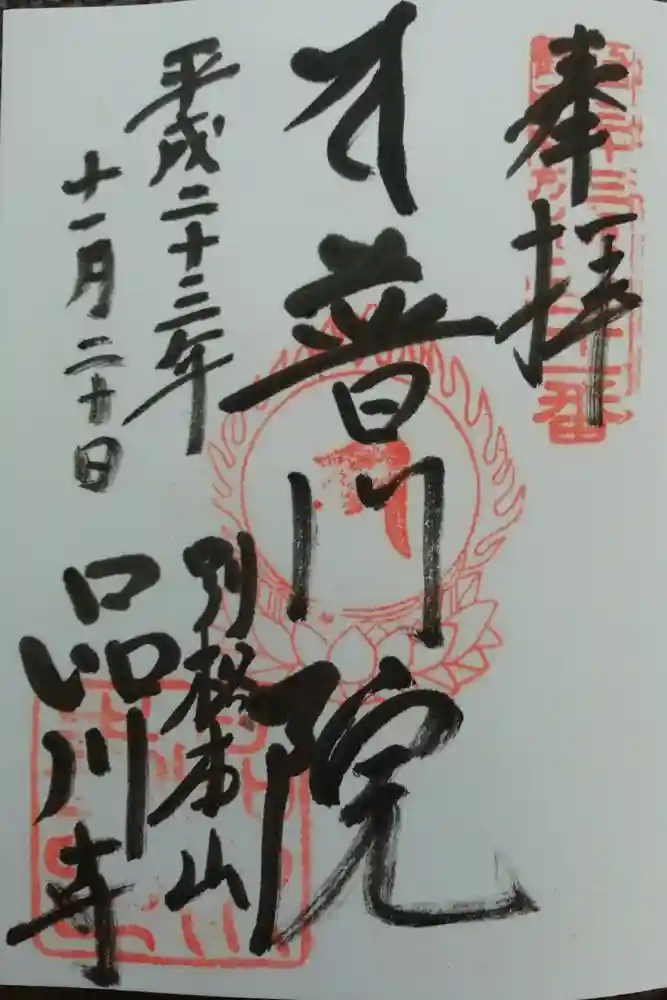 奉拝
普門院
平成二十三年
十一月二十日
別格本山
品川寺